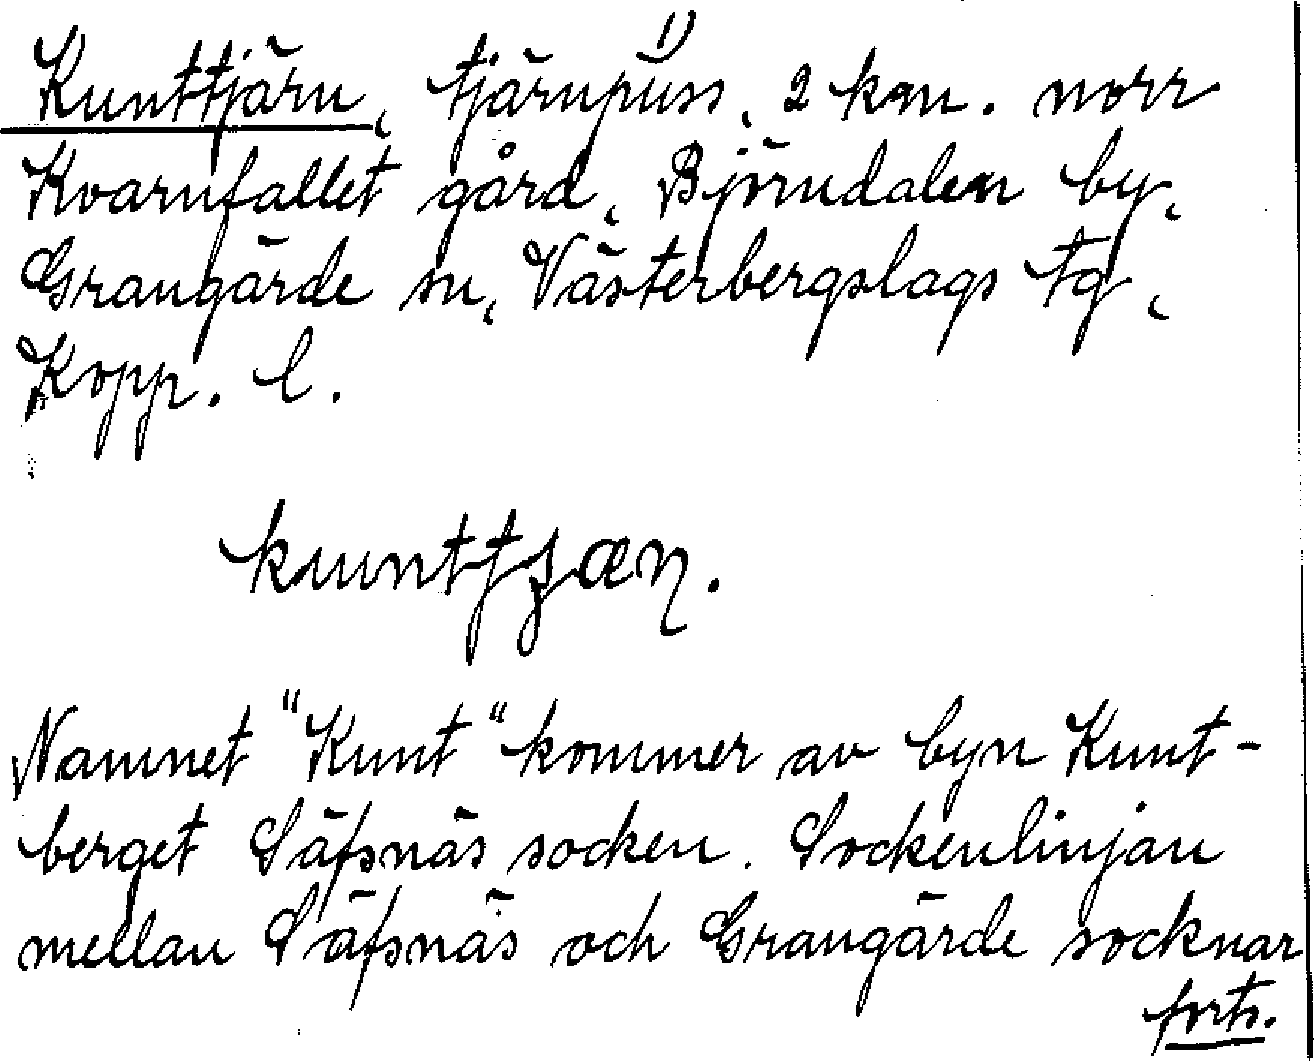 Kunttjärn, tjärnpuss, 1) 2 km. norr
Kvarnfallet gård, Björndalen by,
Grangärde sn, Västerbergslags tg,
Kopp. l.
Namnet "Kunt" kommer av byn Kunt-
berget Säfsnäs socken. Sockenlinjan
mellan Säfsnäs och Grangärde socknar
forts.